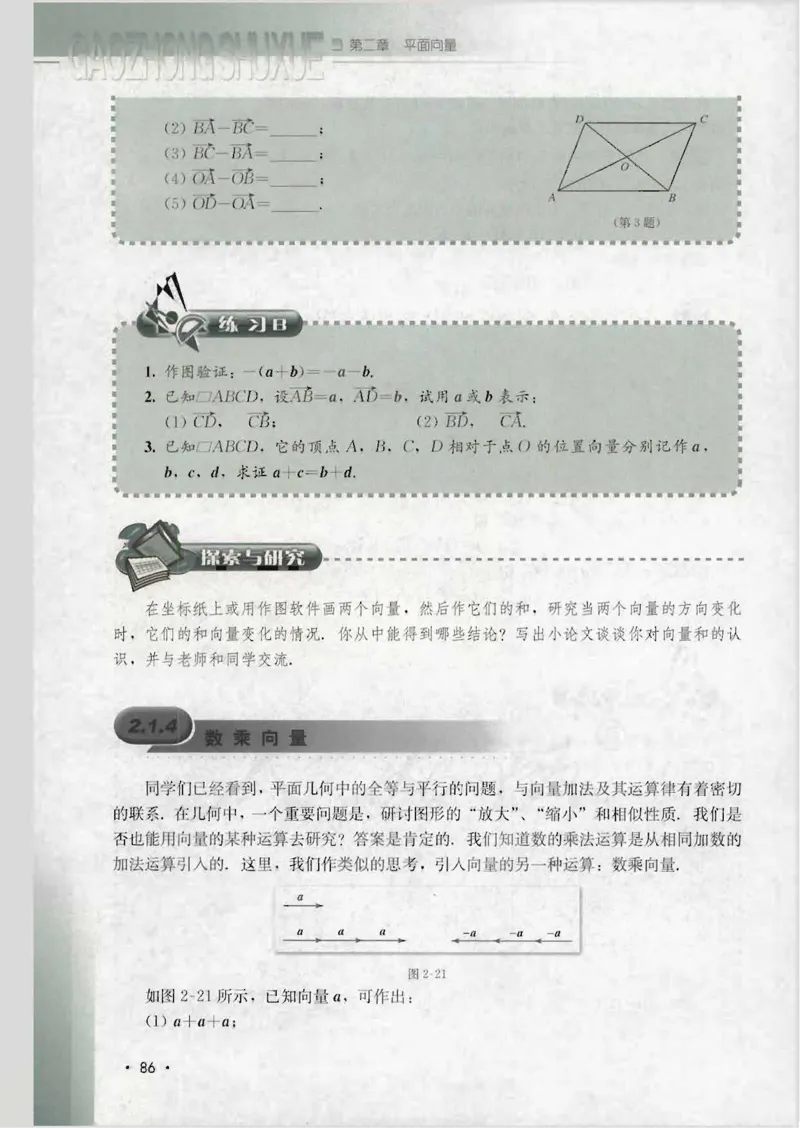 GAOZHONG SHUXUE
第二章 平面向量
(2) BA−BC=______;
(3) BC−BA=______;
(4) OA−OB=______;
(5) OD−OA=______.
D
C
O
A
B
(第3题)
练习B
1. 作图验证：−(a+b)=−a−b.
2. 已知□ABCD，设AB=a，AD=b，试用 a 或 b 表示：
(1) CD， CB； (2) BD， CA.
3. 已知□ABCD，它的顶点 A，B，C，D 相对于点 O 的位置向量分别记作 a，
b，c，d，求证 a+c=b+d.
探索与研究
在坐标纸上或用作图软件画两个向量，然后作它们的和，研究当两个向量的方向变化
时，它们的和向量变化的情况．你从中能得到哪些结论？写出小论文谈谈你对向量和的认
识，并与老师和同学交流．
2.1.4 数乘向量
同学们已经看到，平面几何中的全等与平行的问题，与向量加法及其运算律有着密切
的联系．在几何中，一个重要问题是，研讨图形的“放大”、“缩小”和相似性质．我们是
否也能用向量的某种运算去研究？答案是肯定的．我们知道数的乘法运算是从相同加数的
加法运算引入的．这里，我们作类似的思考，引入向量的另一种运算：数乘向量．
a
a a a −a −a −a
图 2-21
如图 2-21 所示，已知向量 a，可作出：
(1) a+a+a；
· 86 ·